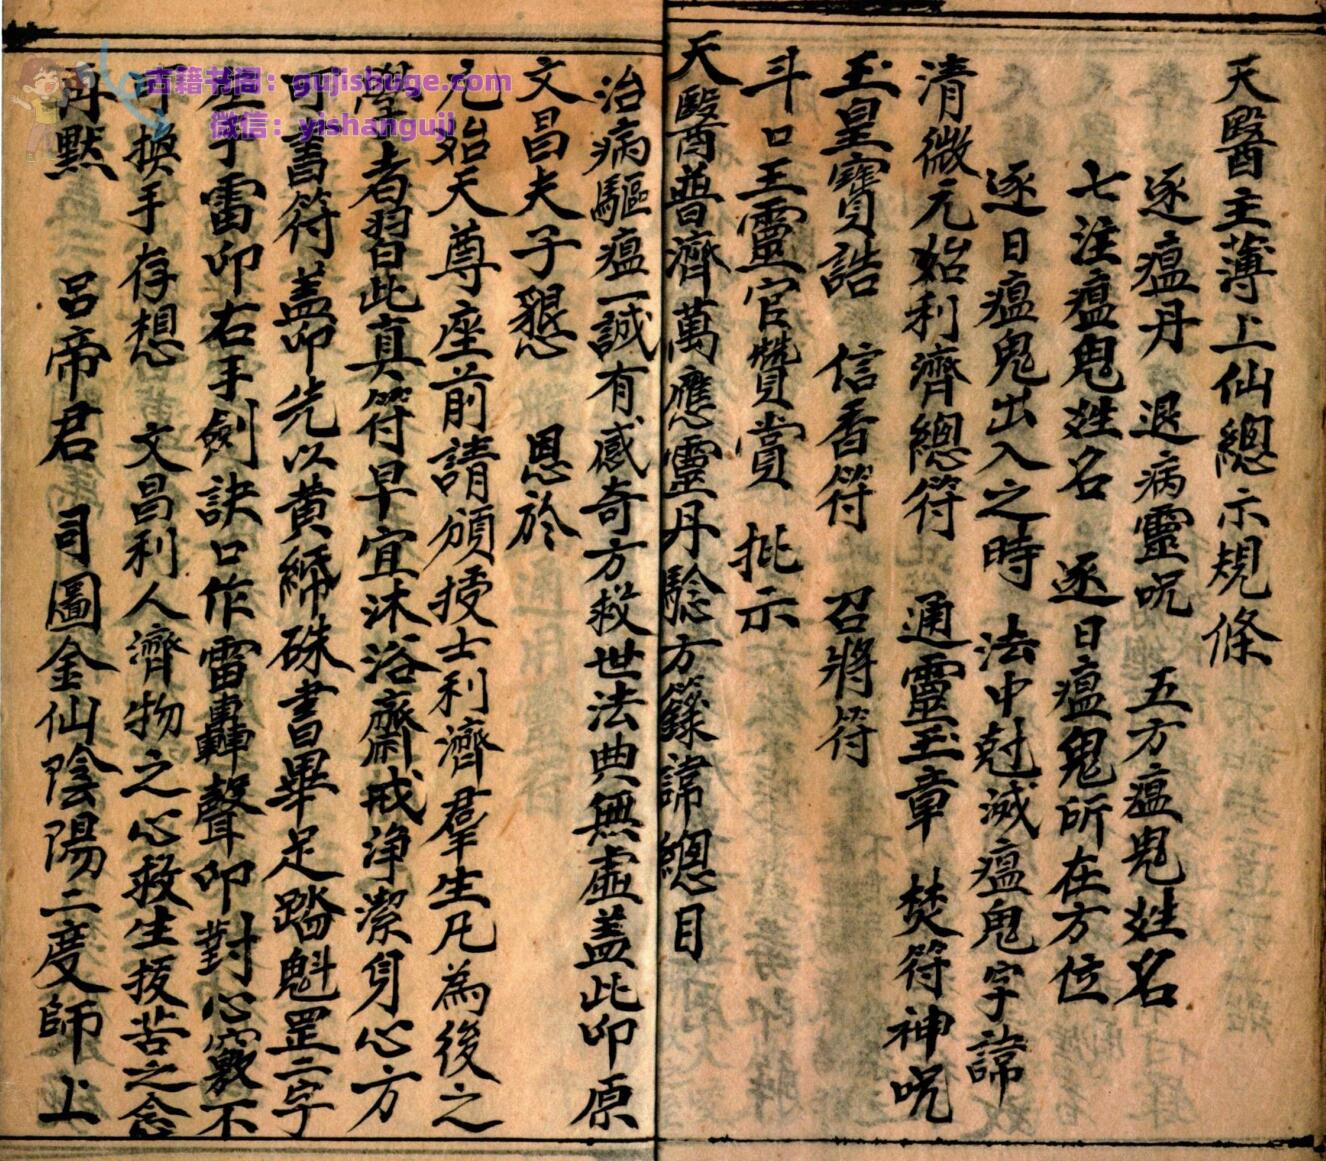 天醫主薄上仙總示規條
逐瘟丹 退病靈呪 五方瘟鬼姓名
七注瘟鬼姓名 逐日瘟鬼所在方位
逐日瘟鬼出入之時 法中尅滅瘟鬼字諱
清微元始利濟總符 通靈玉章 焚符神呪
玉皇寶誥 信香符 召將符
斗口王靈官 賞 批示
天醫普濟萬應靈丹驗方籙諱總目
治病驅瘟一誠有感奇方救世法典無虛盖此印原
文昌夫子懇 恩於
元始天尊座前請頒授士利濟羣生凡為後之
學者習此真符早宜沐浴齋戒净潔身心方
可書符盖印先以黄紙硃書畢足踏魁罡二字
左手雷印右手劍訣口作雷轟聲印對心窽不
可換手存想 文昌利人濟物之心救生拔苦之念
再默 呂帝君 司圖金仙陰陽二度師上
古籍书阁：gujishuge.com
微信：yishanguji